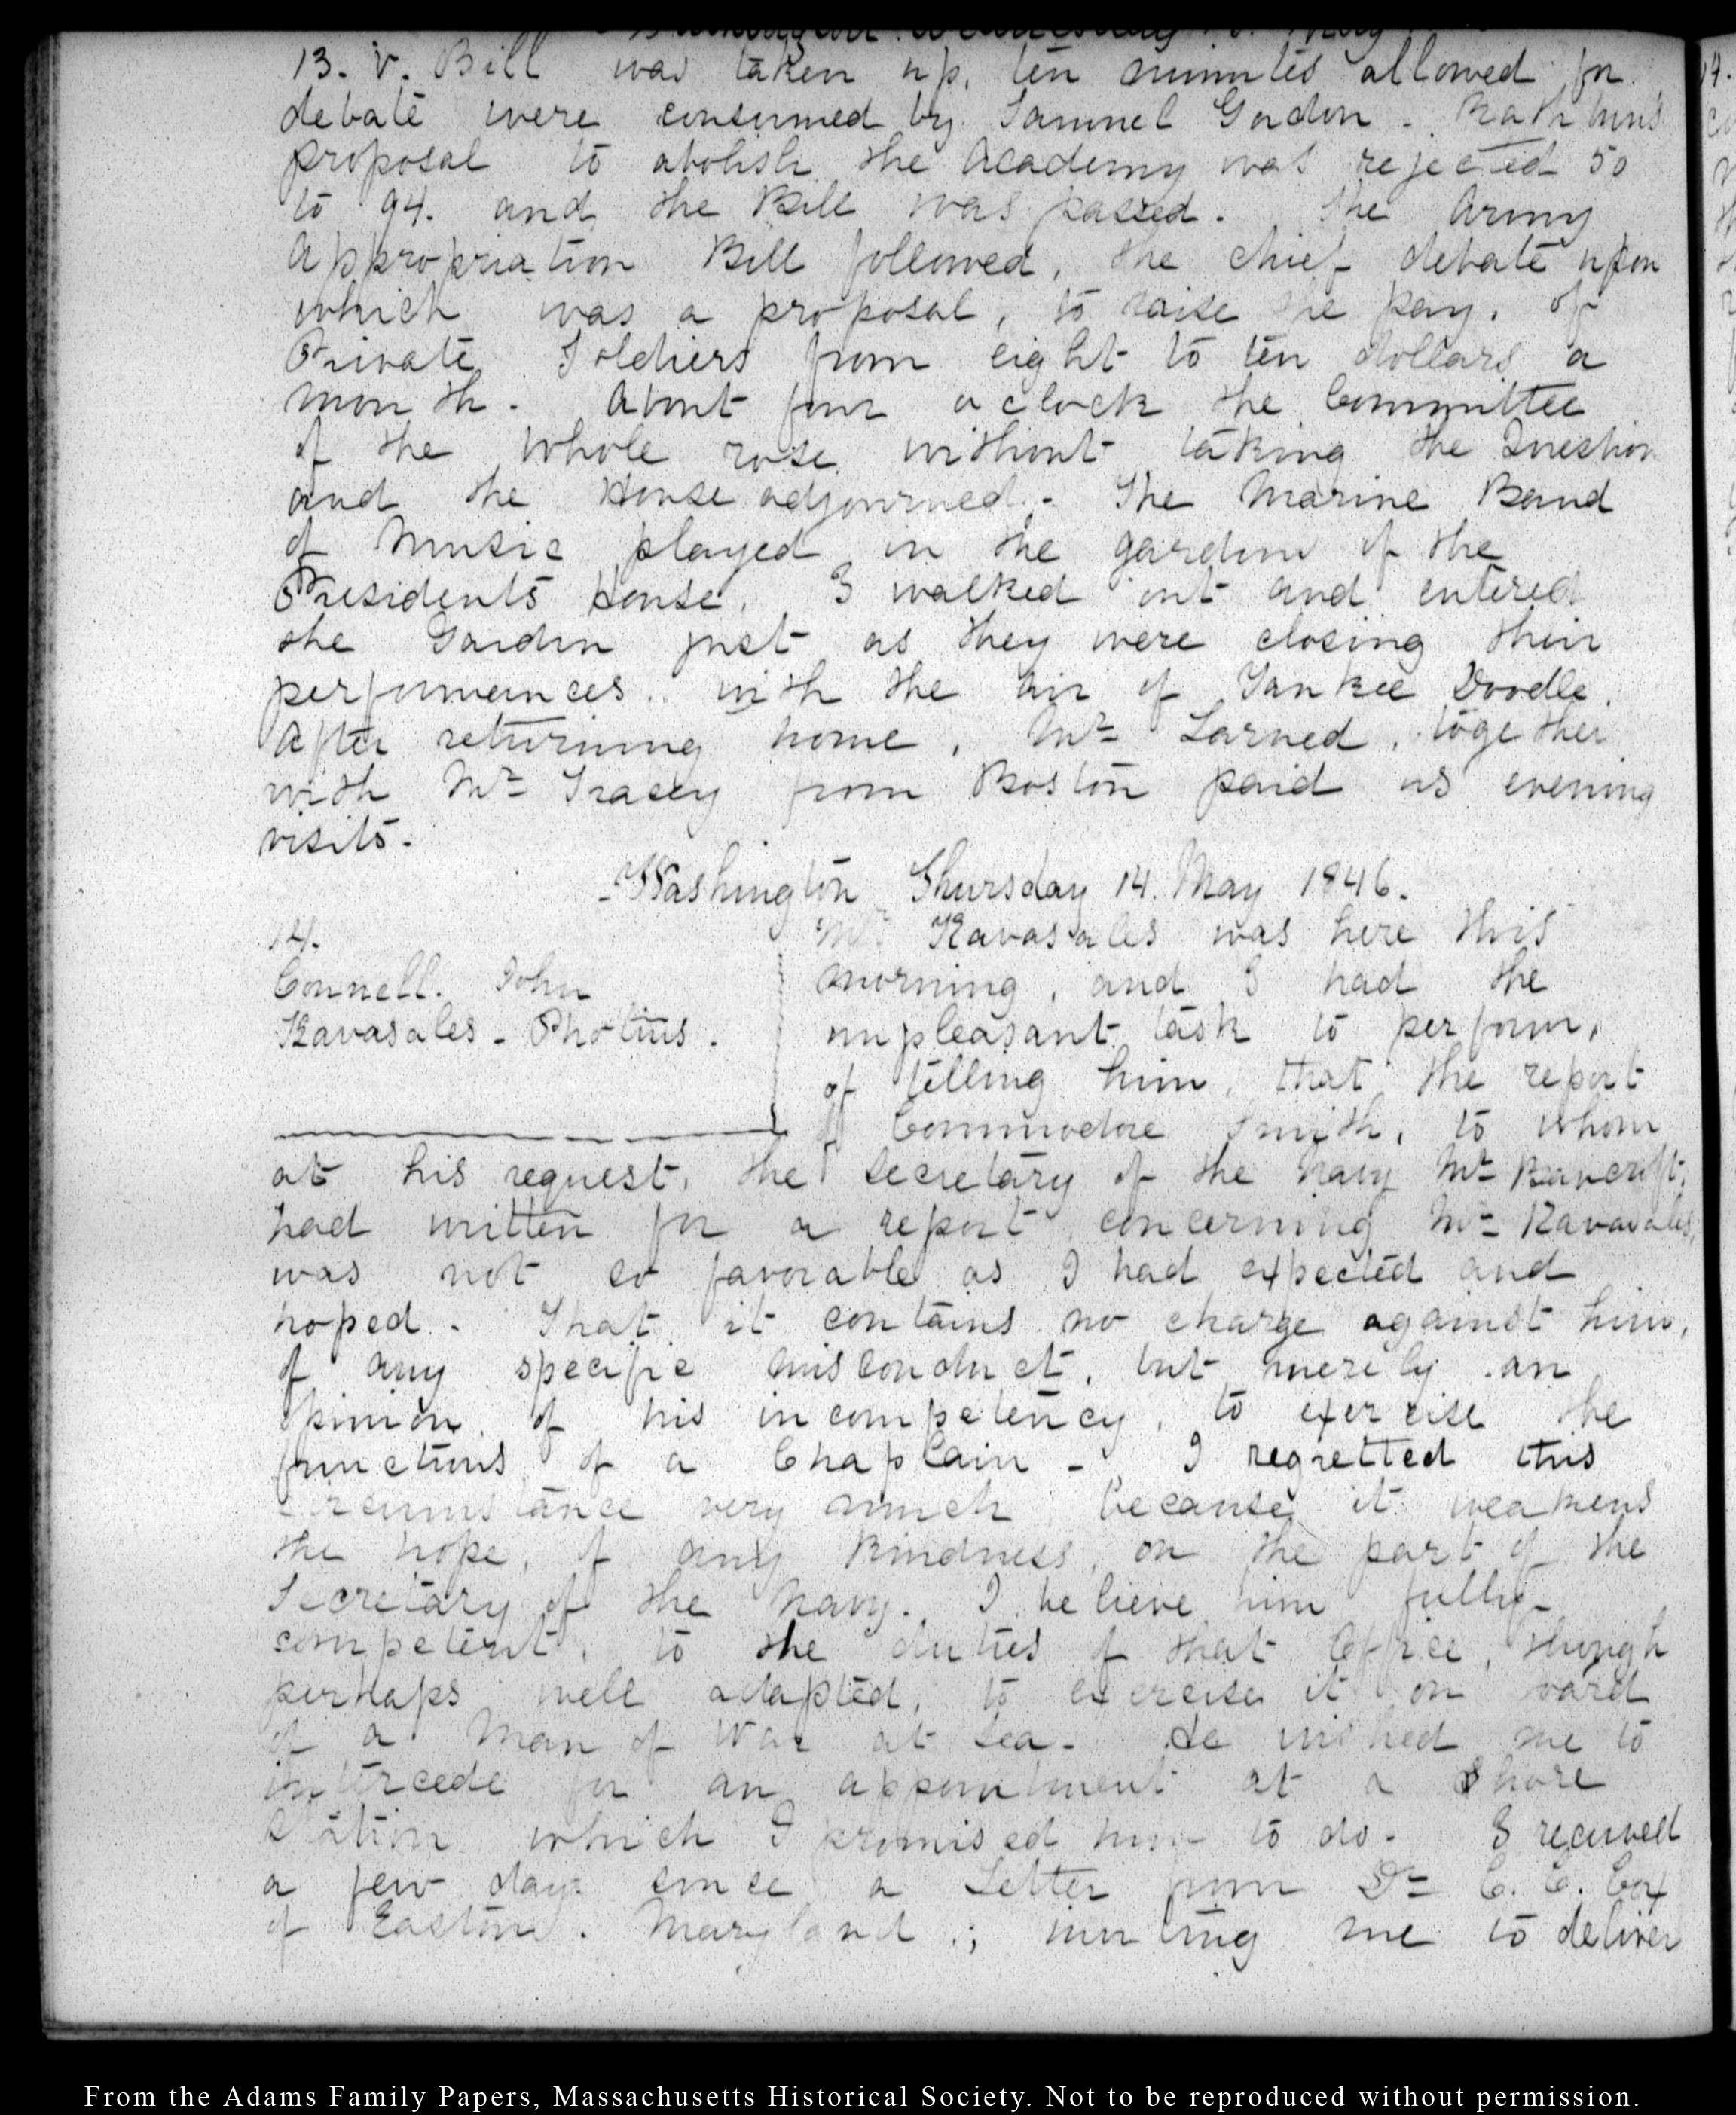 Washington Wednesday 13. May
13. V. Bill was taken up, ten minutes allowed for
debate were consumed by Samuel Gordon - Rathbuns
proposal to abolish the Academy was rejected 50
to 94. and the Bill was passed. The Army
Appropriation Bill followed, the chief debate upon
which was a proposal, to raise the pay, of
Private Soldiers from eight to ten dollars a
month - About four o clock the Committee
of the Whole rose without taking the Question
and the House adjourned. - The Marine Band
of Music played in the garden of the
Presidents House. I walked out and entered
the Garden just as they were closing their
performances.. with the air of Yankee Doodle.
After returning home, Mr Larned, together
with Mr Tracey from Boston paid us evening
visits.
- Washington Thursday 14. May 1846.
14.
Connell. John
Kavasales - Photius.
Mr Kavasales was here this
morning, and I had the
unpleasant task to perform,
of telling him, that the report
of Commodore Smith, to whom
at his request, the Secretary of the Navy Mr Bancroft,
had written for a report concerning Mr Kavasales,
was not so favorable as I had expected and
hoped - That it contains no charge against him,
of any specific misconduct, but merely an
opinion of his incompetency, to exercise the
functions of a Chaplain - I regretted this
circumstance very much because it weakens
the hope, of any kindness, on the part of the
Secretary of the Navy. I believe him fully
competent, to the duties of that Office, though
perhaps well adapted, to exercise it on board
of a Man of War at Sea - He wished me to
intercede for an appointment at a Shore
Station which I promised him to do - I received
a few days since a Letter from Dr C. C. Cox
of Easton. Maryland; inviting me to deliver
From the Adams Family Papers, Massachusetts Historical Society. Not to be reproduced without permission.